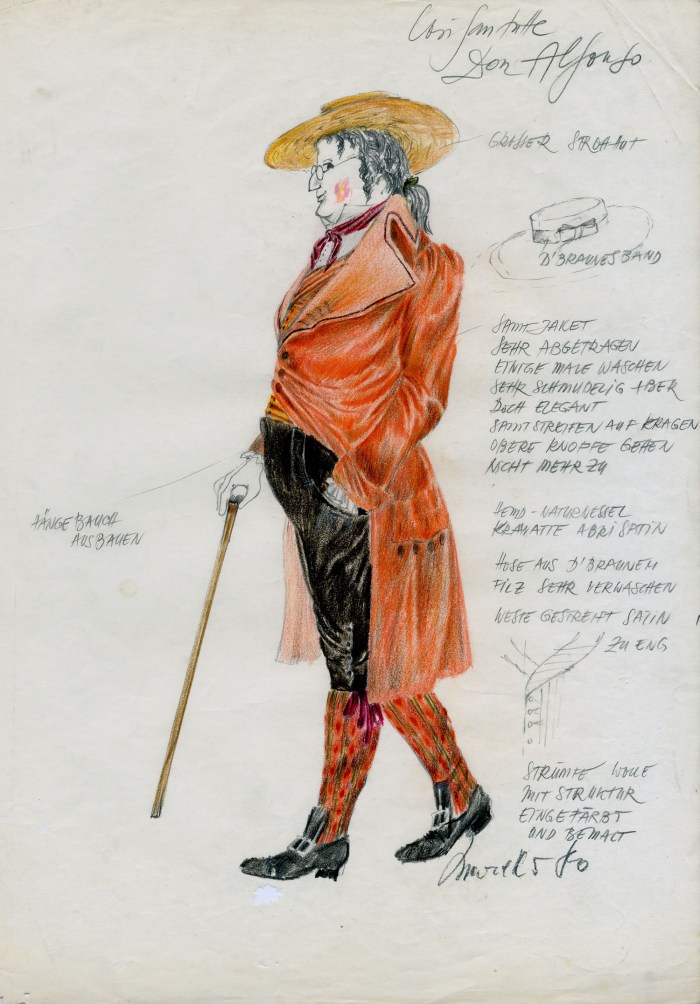 Così fan tutte
Don Alfonso
GROSSER STROHHUT
D'BRAUNES BAND
SAMT-JAKET
SEHR ABGETRAGEN
EINIGE MALE WASCHEN
SEHR SCHMUDELIG ABER
DOCH ELEGANT
SAMTSTREIFEN AUF KRAGEN
OBERE KNOPFE GEHEN
NICHT MEHR ZU
HÄNGEBAUCH
AUSBAUEN
HEMD - NATURNESSEL
KRAWATTE ABRISATIN
HOSE AUS D'BRAUNEM
FILZ SEHR VERWASCHEN
WESTE GESTREIFT SATIN
ZU ENG
STRÜMPFE WOLLE
MIT STRUKTUR
EINGEFÄRBT
UND BEMALT
80